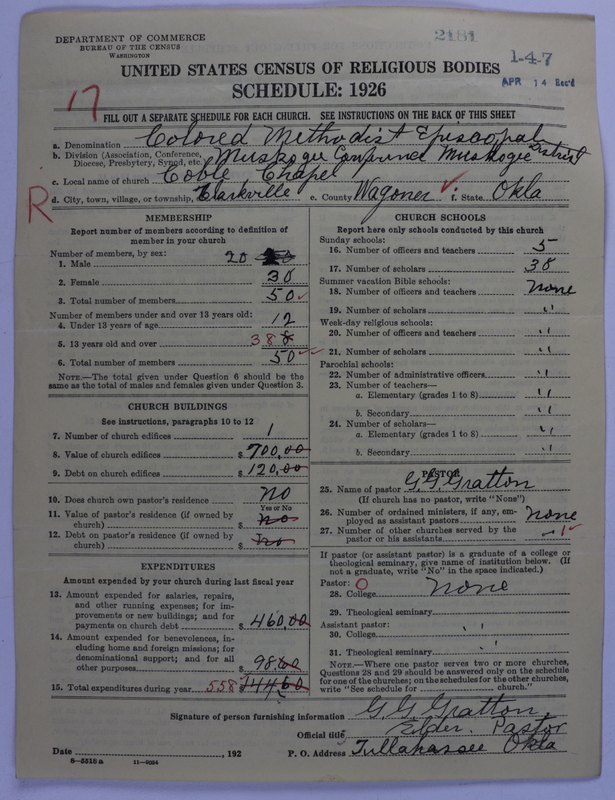 DEPARTMENT OF COMMERCE
BUREAU OF THE CENSUS
WASHINGTON
2181
1-4-7
APR 14 Rec'd
UNITED STATES CENSUS OF RELIGIOUS BODIES
SCHEDULE: 1926
17
FILL OUT A SEPARATE SCHEDULE FOR EACH CHURCH. SEE INSTRUCTIONS ON THE BACK OF THIS SHEET
a. Denomination Colored Methodist Episcopal
b. Division (Association, Conference, Diocese, Presbytery, Synod, etc.) Muskogee Muskogee District
c. Local name of church Coble Chapel
R
d. City, town, village, or township, Clarkville e. County Wagoner ✓ f. State Okla
MEMBERSHIP
Report number of members according to definition of
member in your church
Number of members, by sex:
1. Male 20
2. Female 30
3. Total number of members 50 ✓
Number of members under and over 13 years old:
4. Under 13 years of age 12
5. 13 years old and over 38
6. Total number of members 50 ✓
NOTE.—The total given under Question 6 should be the
same as the total of males and females given under Question 3.
CHURCH BUILDINGS
See instructions, paragraphs 10 to 12
7. Number of church edifices 1
8. Value of church edifices $ 700.00
9. Debt on church edifices $ 120.00
10. Does church own pastor's residence no
Yes or No
11. Value of pastor's residence (if owned by
church) $ no
12. Debt on pastor's residence (if owned by
church) $ no
EXPENDITURES
Amount expended by your church during last fiscal year
13. Amount expended for salaries, repairs,
and other running expenses; for im-
provements or new buildings; and for
payments on church debt $ 460.00
14. Amount expended for benevolences, in-
cluding home and foreign missions; for
denominational support; and for all
other purposes $ 98.00
15. Total expenditures during year 558
CHURCH SCHOOLS
Report here only schools conducted by this church
Sunday schools:
16. Number of officers and teachers 5
17. Number of scholars 38
Summer vacation Bible schools:
18. Number of officers and teachers none
19. Number of scholars "
Week-day religious schools:
20. Number of officers and teachers "
21. Number of scholars "
Parochial schools:
22. Number of administrative officers "
23. Number of teachers—
a. Elementary (grades 1 to 8) "
b. Secondary "
24. Number of scholars—
a. Elementary (grades 1 to 8) "
b. Secondary "
PASTOR
25. Name of pastor G.G. Gratton
(If church has no pastor, write "None")
26. Number of ordained ministers, if any, em-
ployed as assistant pastors none
27. Number of other churches served by the
pastor or his assistants 1 ✓
If pastor (or assistant pastor) is a graduate of a college or
theological seminary, give name of institution below. (If
not a graduate, write "No" in the space indicated.)
Pastor: O
28. College none
29. Theological seminary
Assistant pastor:
30. College "
31. Theological seminary "
NOTE.—Where one pastor serves two or more churches,
Questions 28 and 29 should be answered only on the schedule
for one of the churches; on the schedules for the other churches,
write "See schedule for church."
Signature of person furnishing information G. G. Gratton
Official title Elder. Pastor
Date , 192 P. O. Address Tullahassee Okla
8—5518a 11—9054